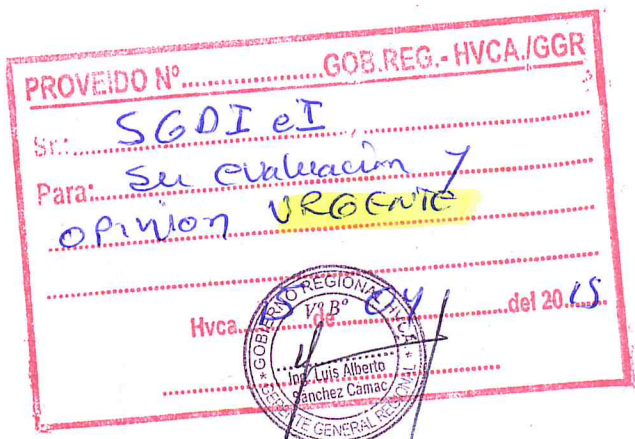 PROVEIDO Nº....................GOB.REG.- HVCA./GGR
Sr.: SGDI eI
Para: Su evaluación y
opinion URGENTE
Hvca. de 04 del 2015
GOBIERNO REGIONAL HVCA
Vº Bº
Ing. Luis Alberto
Sánchez Camac
GERENTE GENERAL REGIONAL